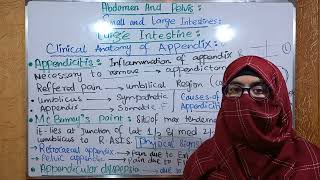 Abdomen And Pelvis:
Small and Large Intestines:
Large Intestine:
Clinical Anatomy of Appendix:
• Appendicitis: Inflammation of appendix
Necessary to remove → appendictom
Reffered pain → umbilical Region
umbilicus → Sympathetic
Appendix → Somatic
Causes of Appendicitis
• Mc Burney's point: Site of max tender
it lies at junction of lat 1/3 & med 2/
umbilicus to R-ASIS
Physical Signs
• Retrocaecal appendix → Pain due to
• Pelvic appendix → Pain due to
• Appendicular dyspepsia → due